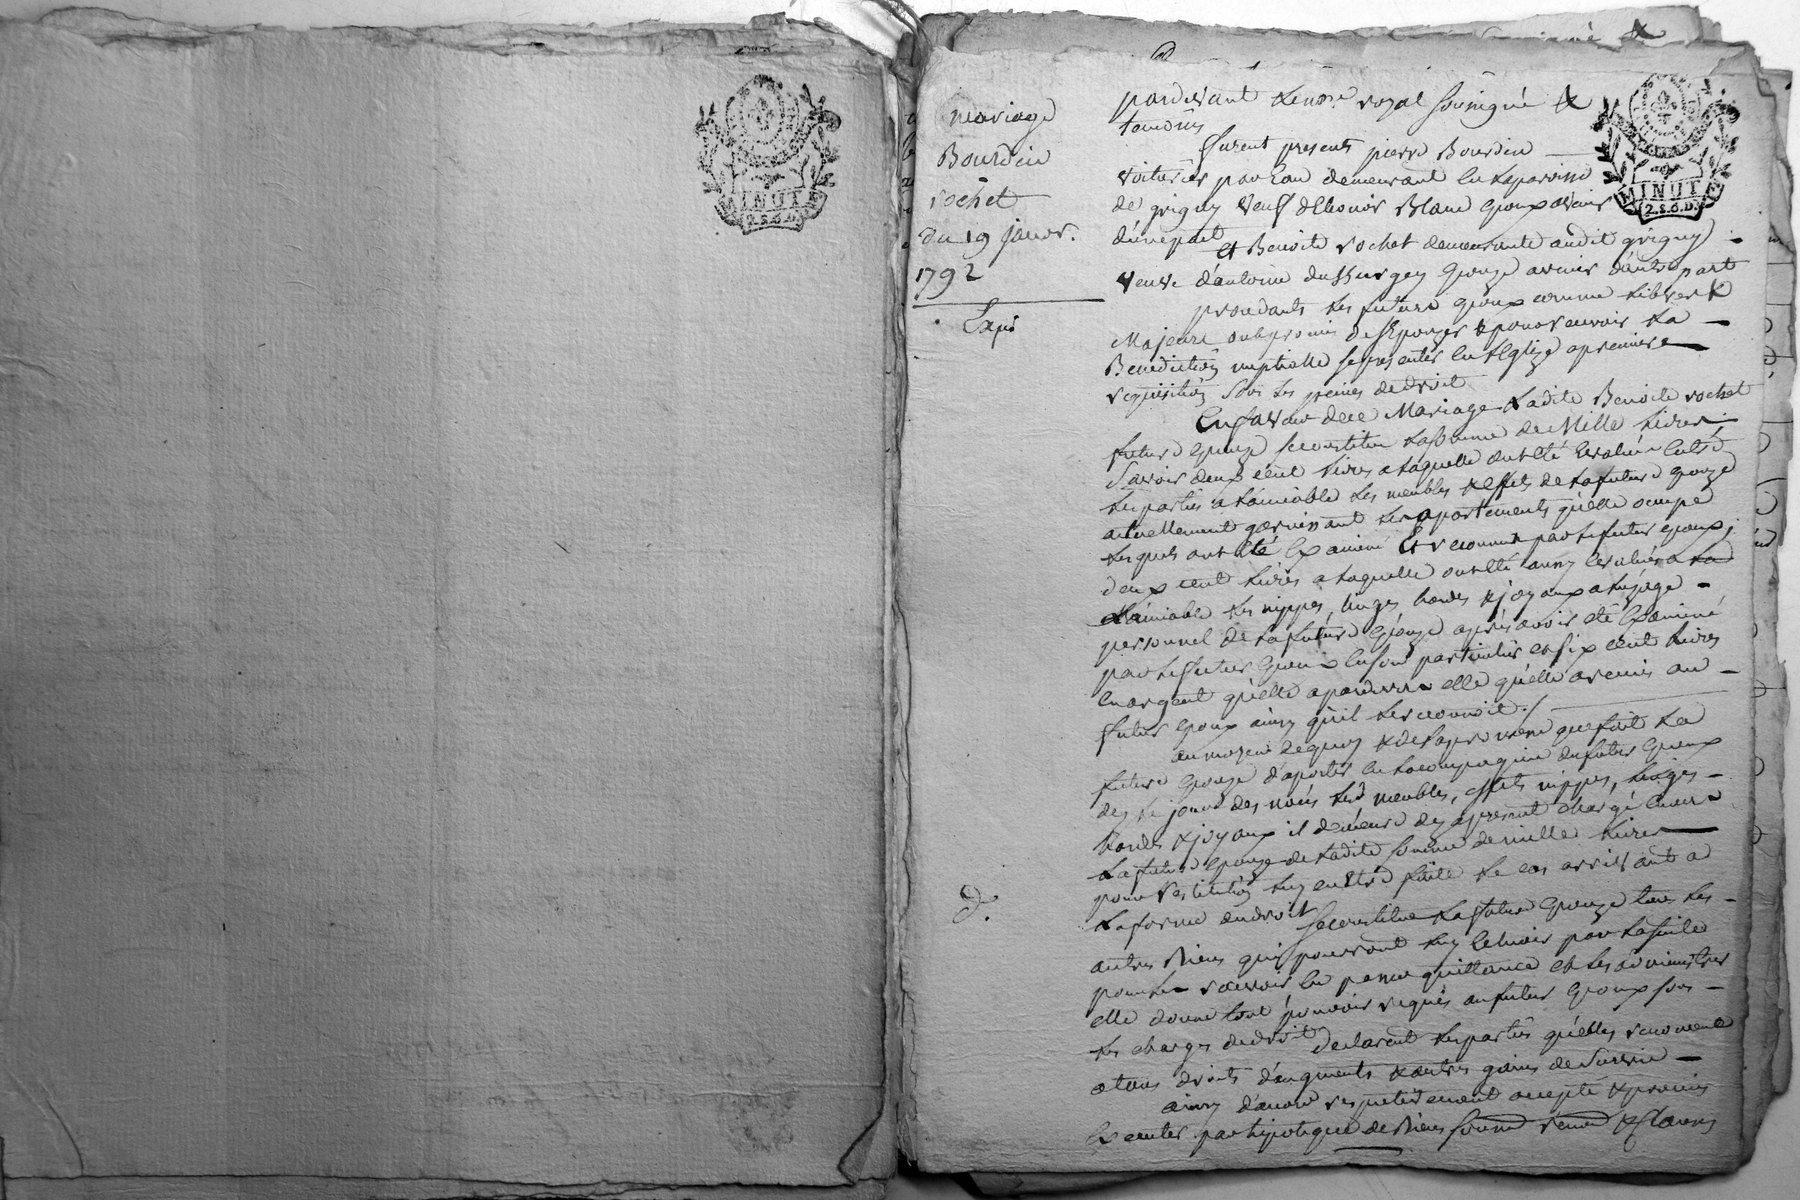 mariage
Bourdin
rochet
du 19 janvr.
1792
Expé
pardevant le nore royal soussigné &
temoins
furent presents pierre Bourdin
voiturier par eau demeurant en la paroisse
de grigny veuf d'Eleonor Blanc Epoux avenir
d'une part
et Benoite rochet demeurante audit grigny
veuve d'antoine dussurgey Epouze avenir d'autre part
procedants les futurs Epoux comme libres &
Majeurs ont promis de s'Epouzer & pour recevoir la
Benediction nuptialle se presenter en l'Eglize a premiere
requisition sous les peines de droit
En faveur de ce Mariage Ladite Benoite rochet
future Epouze se constitue la somme de Mille livres
Savoir deux cent livres a laquelle ont été Evalués Entre
les parties a l'amiable les meubles & Effets de la future Epouze
actuellement garnissant les apartements qu'elle occupe
lesquels ont été Examiné Et reconnus par le futur Epoux;
deux cent livres a laquelle ont été aussy Evalués a la
l'amiable les nippes, linges, hardes & joyaux a l'uzage
personnel de la future Epouze après avoir été Examiné
par le futur Epoux En son particulier et six cent livres
En argent qu'elle a pardevers elle qu'elle a remis au
futur Epoux ainsy qu'il le reconnoit./
au moyen de quoy & de la promesse que fait la
future Epouze d'aporter En la compagnie du futur Epoux
des le jour des noces lesd meubles, effets nippes, linges
hardes & joyaux il demeure dez apresent chargé Envers
la future Epouze de ladite somme de mille livres
pour restitution luy en Etre faite le cas arrivant a
la forme du droit
se constitue la future Epouze tous les
autres Biens qui pourront luy Echoir par la suite
pour les recevoir En passer quittance et les administrer
elle donne tout pouvoir requis au futur Epoux sous
les charges de droit
Declarent les parties qu'elles renoncent
a tous droits d'augments & autres gains de survie
ainsy d'accord respectivement accepté & promis
Executer par hipoteque de Biens soumis renon & clauses
d.
MINUTE
2.S.6.D.
MINUTE
2.S.6.D.